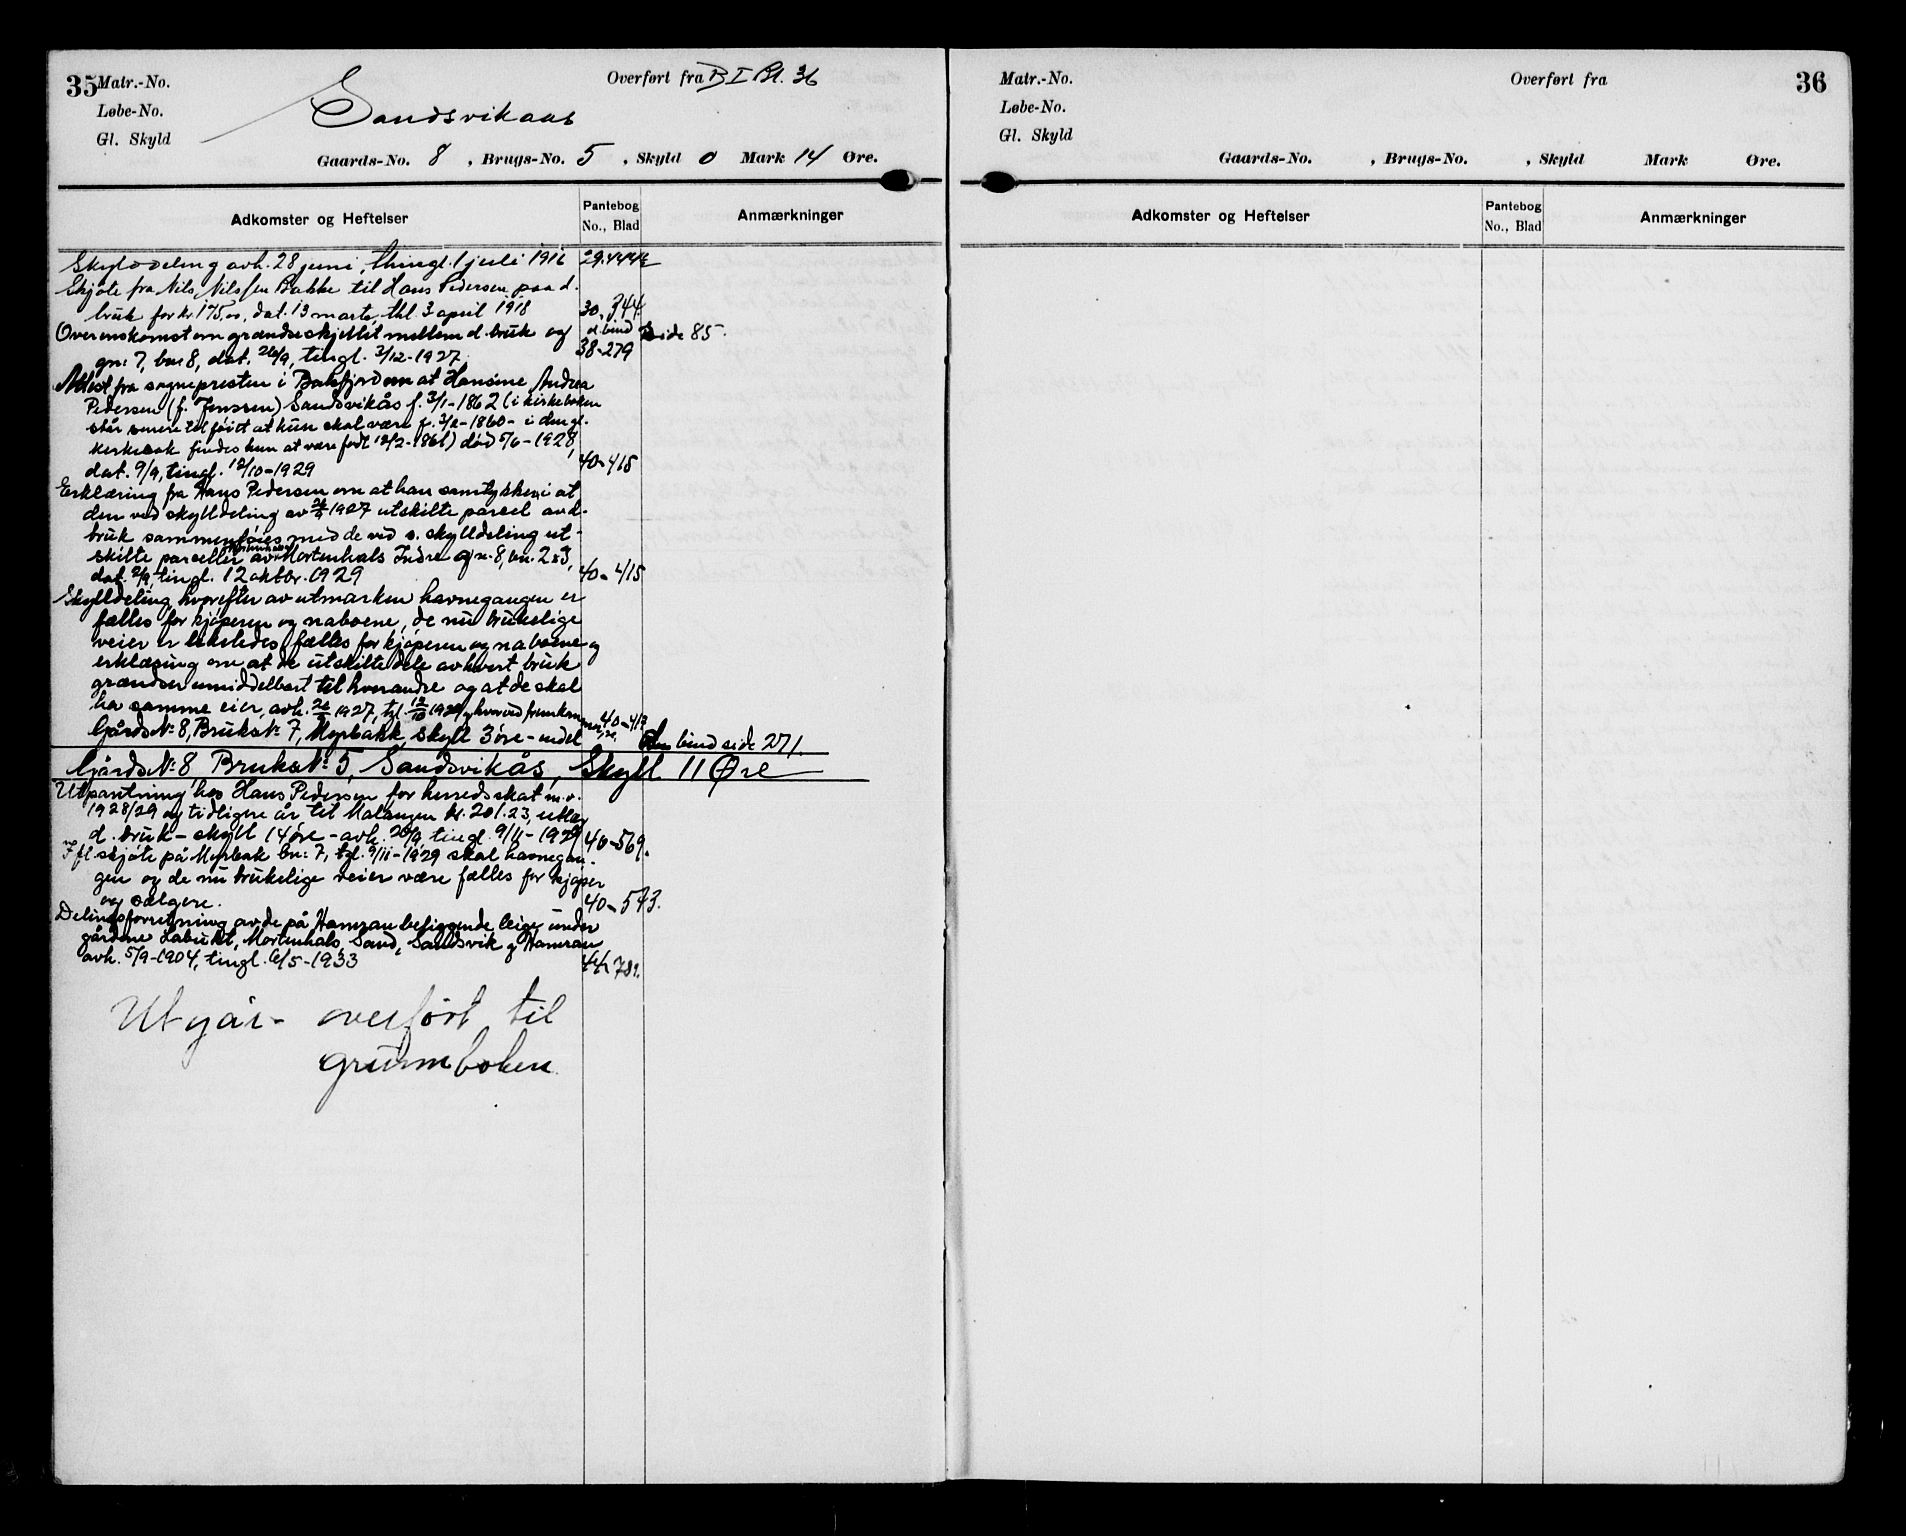 35 Matr.-No. Overført fra B I Bl. 36
Løbe-No. Sandsvikaas
Gl. Skyld
Gaards-No. 8, Brugs-No. 5, Skyld 0 Mark 14 Øre.
Adkomster og Heftelser Pantebog No., Blad Anmærkninger
Skylddeling avh. 28 juni, thingl. 1 juli 1916 29.
Skjøte fra Nils Nilssen Bakke til Hans Pedersen paa d.
bruk for kr. 175.00, dat. 13 marts, thl 3 april 1918 30. 344
Overenskomst om grændseskjellet mellem d. bruk og d. bind Side 85.
gn: 7, bn: 8, dat. 26/9, tingl. 3/12-1927 38-279
Attest fra sognepresten i Balsfjord om at Hansine Andrea
Pedersen (f. Jenssen) Sandsvikås f. 3/1-1862 (i kirkeboken
står senere tilføiet at hun skal være f. 3/2-1860- i den gl.
kirkebok findes hun at være født 12/2-1861) død 5/6-1928,
dat. 9/9, tingl. 12/10-1929 40-415
Erklæring fra Hans Pedersen om at han samtykker i at
den ved skylddeling av 1927 utskilte parcel av d.
bruk sammenføies med de ved s. skylddeling ut-
skilte parceller av Mortenhals Indre gn. 8, bn. 2 & 3,
dat. 2/9, tingl. 12 oktbr. 1929 40-415
Skylddeling hvorefter av utmarken havnegangen er
fælles for kjøperen og naboene, de nu brukelige
veier er likeledes fælles for kjøperen og naboene og
erklæring om at de utskilte dele av hvert bruk
grændser umiddelbart til hverandre og at de skal
ha samme eier, avh. 26/9 1927, tgl. 12/10 1929, hvorved fremkom- 40-413
Gårds No 8, Bruks No 7, Myrbakk, skyld 3 øre - bind side 271.
Gårds No 8 Bruks No 5, Sandsvikås, Skyld 11 Øre
Utpantning hos Hans Pedersen for herredsskat m.v.
1928/29 og tidligere år til Malangen kr. 201.23, utlæg
d. bruk - skyld 14 øre - avh. 20/9, tingl. 9/11-1929 40-569.
skjøte på Myrbak bn: 7, tgl. 9/11-1929 skal havnegan-
gen og de nu brukelige veier være fælles for kjøper
og sælgere. 40-573.
Delingsforretning av de på Hamran beliggende leige under
gårdene Labukt, Mortenhals, Sand, Sandsvik & Hamran
avh. 5/9-1904, tingl. 6/5-1933 44-781.
Utgår - overført til
grunnboken
Matr.-No. Overført fra 36
Løbe-No.
Gl. Skyld
Gaards-No. , Brugs-No. , Skyld Mark Øre.
Adkomster og Heftelser Pantebog No., Blad Anmærkninger